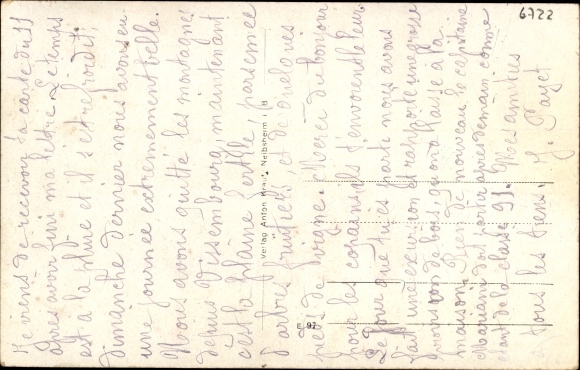 Je viens de recevoir ta carte du 11
après avoir fini ma lettre. Le temps
est à la pluie et il s'est refroidit,
Dimanche dernier nous avons eu
une journée extrêmement belle.
Nous avons quitté les montagnes
depuis Wissembourg, maintenant
c'est la plaine fertile, parsemée
d'arbres fruitiers, et de quelques
pieds de vigne. Merci du bonjour
pour les copains, ils t'envoient le leur.
Le jour que tu es parti nous avons
fait une excursion et rapporté une grosse
de bois, qu'on a laissé à la
maison. Rien de nouveau, le capitaine
Mariani doit partir après demain comme
étant de la classe 91. Mes amitiés
à tous les tiens. J. Payet
Verlag Anton Kraus, Neibsheim i. B.
E 97
6722